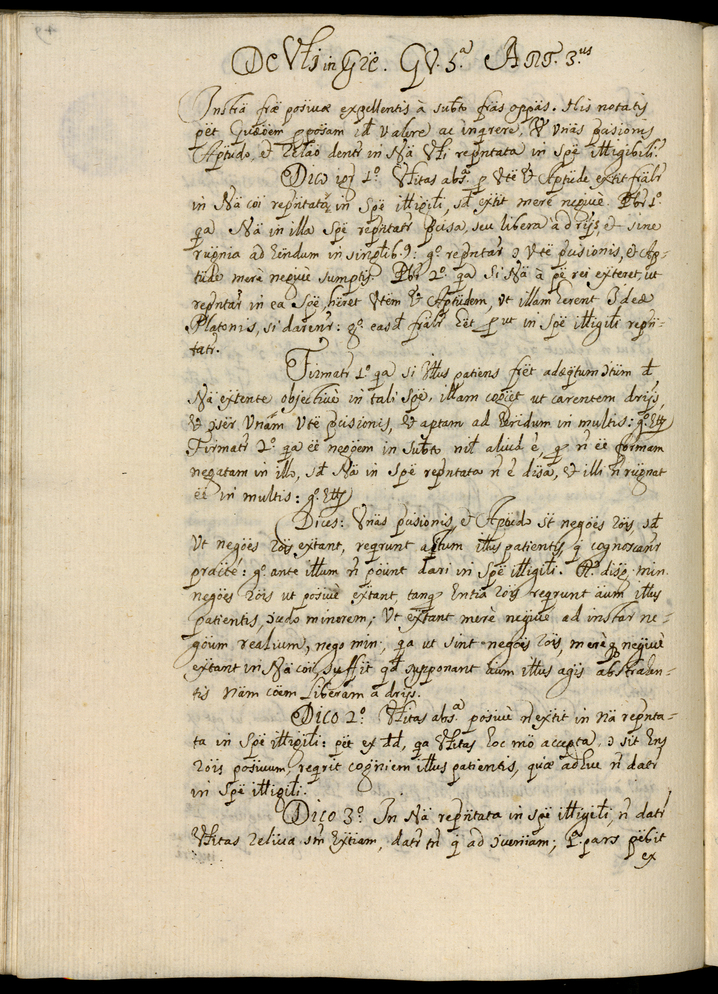 De Vłi in Gñe. Qu. 5.ª Art. 3.us
Instra fræ posiuæ expellentis à subto fras oppas. His notatis
pët Quæõem pposam id valere ac inqrere, an Vnäs pcisionis
Aptudo, et relão dentr in Nä Vłi repñtata in Spë iłłigibili.
Dico igr 1.º Vłitas abs.ª p Vtë et Aptude extit fralr
in Nä coi repñtata in Spë iłłigibłi, sd extit merè negiuè. Pbr 1.º
qa Nä in illa Spë repñtatr pcisa, seu libera à drijs, et sine
rupnia ad Eindum in singlib.9: g.º repñtar c Vte pcisionis, et Ap-
tude merè negiuè sumptis. Pbr 2.º qa si Nä à pë rei exteret, ut
repñtar in ea Spë, hëret Vtëm et Aptudem, ut illam hërent Ideæ
Platonis, si darentr: g.º easd fralr hët p ut in Spë iłłigibłi repñ-
tatr.
Firmatr 1.º qa si Iłłus patiens frët adæqtum ctum d
Nä extente objectiuè in tali Spë, illam cocet ut carentem drijs,
et cser Vnäm Vte pcisionis, et aptam ad Eindum in multis: g.º Etc
Firmatr 2.º qa ëe negöem in subto nil aliud ë, q ñ ëe formam
negatam in illo, sd Nä in Spë repñtata ñ ë diïsa, et illi ñ rugnat
ëe in multis: g.º Etc
Dices: Vnäs pcisionis, et Aptudo st negöes röis, sd
Vt negöes röis extant, reqrunt actum iłłus patientis, q cognoscantr
practë: g.º ante illum ñ pount dari in Spë iłłigibłi. R.º disg. min.
negöes röis ut posiuè extant, tanq Entia röis reqrunt äum iłłus
patientis, cudo minorem; Vt extant merè negiuè ad instar ne-
göum realium, nego min., qa ut sint negöis röis, merè q negiuè
extant in Nä cöi, suffit qd supponant äum iłłus agis abstrahän-
tis näm cöem liberam à drijs.
Dico 2.º Vłitas abs.ª posiuè ñ extit in nä repñta-
ta in Spë iłłigibłi: pët ex dd, qa Vłitas hoc mö accepta, c sit Ens
röis posiuum, reqrit cogniem iłłus patientis, quæ adhuc ñ datr
in Spë iłłigibłi.
Dico 3.º In Nä repñtata in spë iłłigibłi, ñ datr
Vłitas reliua sm Extiam, datr tñ q ad cueniam; 1.ª pars pëbit
ex